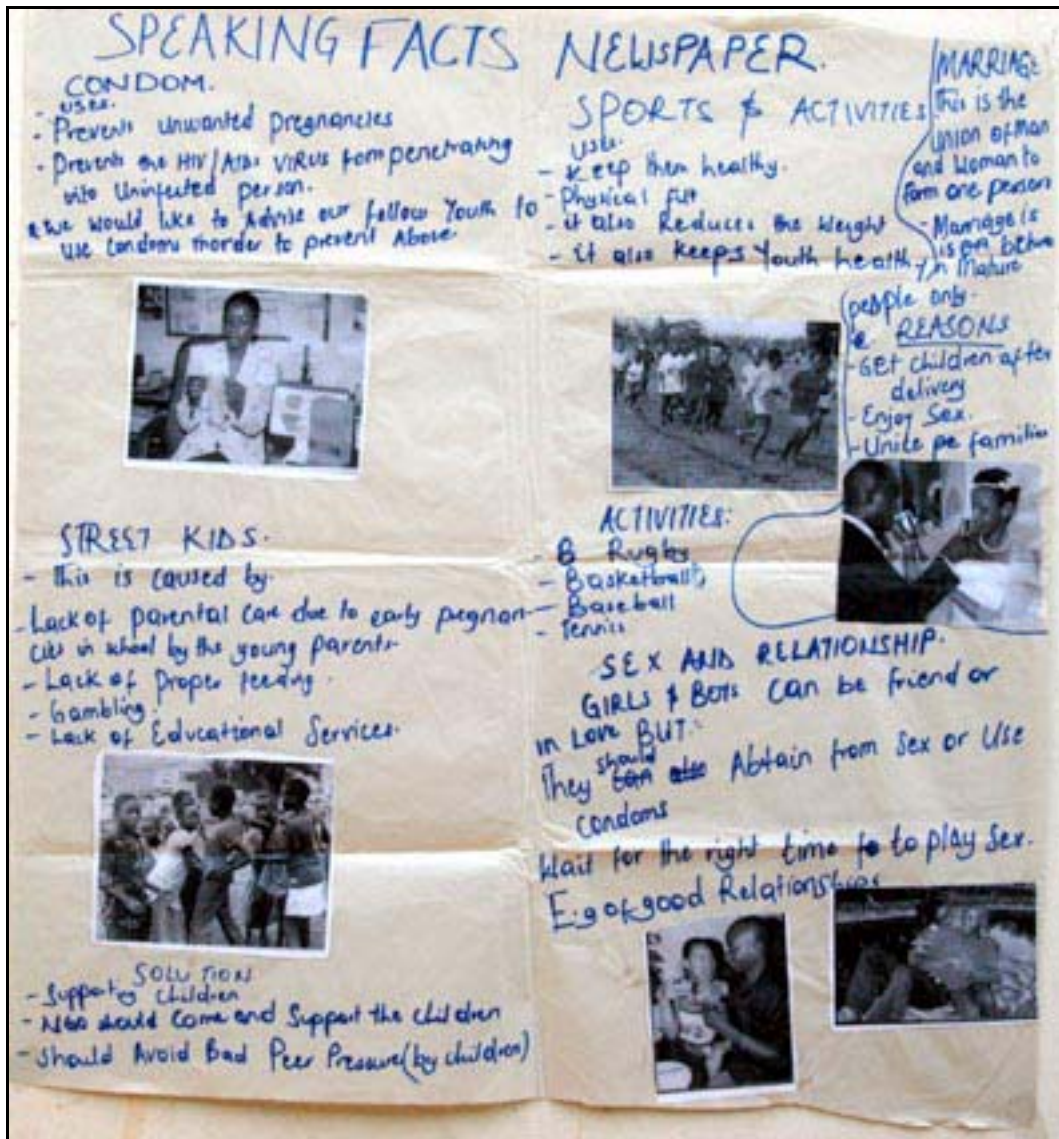 SPEAKING FACTS NEWSPAPER.
CONDOM.
- uses.
- Prevents unwanted Pregnancies
- Prevents the HIV/AIDs VIRUS from penetrating
into Uninfected person.
we would like to Advise our fellow Youth to
use Condoms inorder to prevent Above.
STREET KIDS.
- This is caused by.
- Lack of parental Care due to early pregnan-
cies in school by the young parents.
- Lack of Proper feeding.
- Gambling.
- Lack of Educational Services.
SOLUTION
- Supporting children
- NGO should Come and Support the children
- Should Avoid Bad Peer Pressure (by children)
SPORTS & ACTIVITIES
use.
- Keep them healthy.
- Physical
- it also Reduces the Weight
- it also keeps Youth healthy
ACTIVITIES:
- Rugby
- Basketball
- Baseball
- Tennis
MARRIAGE
this is the
Union of Man
and Woman to
Form one person
- Marriage is
in Mature
people only.
REASONS
- GEt children after
delivery
- Enjoy Sex.
- Unite families
SEX AND RELATIONSHIP.
GIRLS & BOYS Can be friend or
in Love BUT.
should
They can also Abtain from Sex or Use
Condoms
Wait for the right time to to play Sex.
E.g of good Relationships